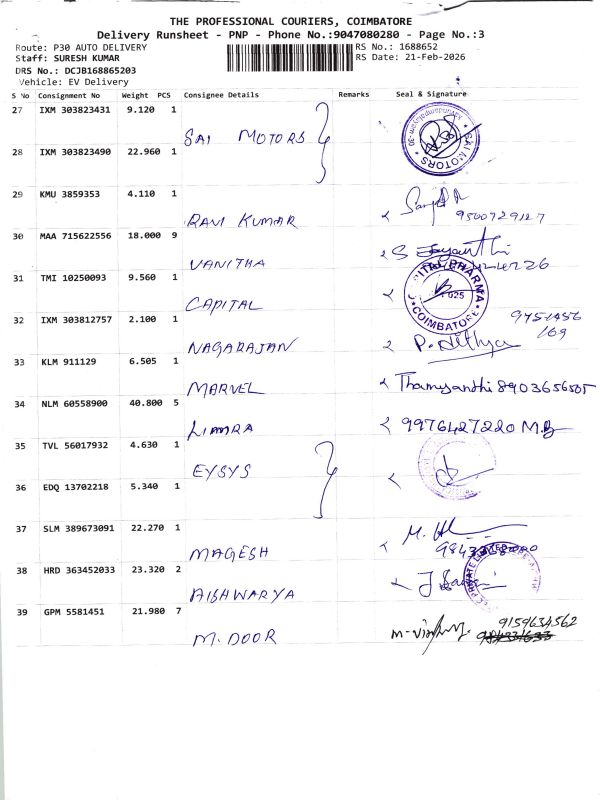 THE PROFESSIONAL COURIERS, COIMBATORE
Delivery Runsheet - PNP - Phone No.:9047080280 - Page No.:3
Route: P30 AUTO DELIVERY RS No.: 1688652
Staff: SURESH KUMAR RS Date: 21-Feb-2026
DRS No.: DCJB168865203
Vehicle: EV Delivery
S No Consignment No Weight PCS Consignee Details Remarks Seal & Signature
27 IXM 303823431 9.120 1
SAI MOTORS
SAI MOTORS
28 IXM 303823490 22.960 1
29 KMU 3859353 4.110 1
RAVI KUMAR 9500729127
30 MAA 715622556 18.000 9
VANITHA S
31 TMI 10250093 9.560 1
CAPITAL
PHARMA
COIMBATORE
32 IXM 303812757 2.100 1 9751456
169
NAGARAJAN P. Nithya
33 KLM 911129 6.505 1
MARVEL 8903656505
34 NLM 60558900 40.800 5
LIMRA 9976427220 M.B
35 TVL 56017932 4.630 1
EYSYS
36 EDQ 13702218 5.340 1
37 SLM 389673091 22.270 1
MAGESH
38 HRD 363452033 23.320 2
AISHWARYA
PRIVATE LIMITED
39 GPM 5581451 21.980 7
M. DOOR 9159634562